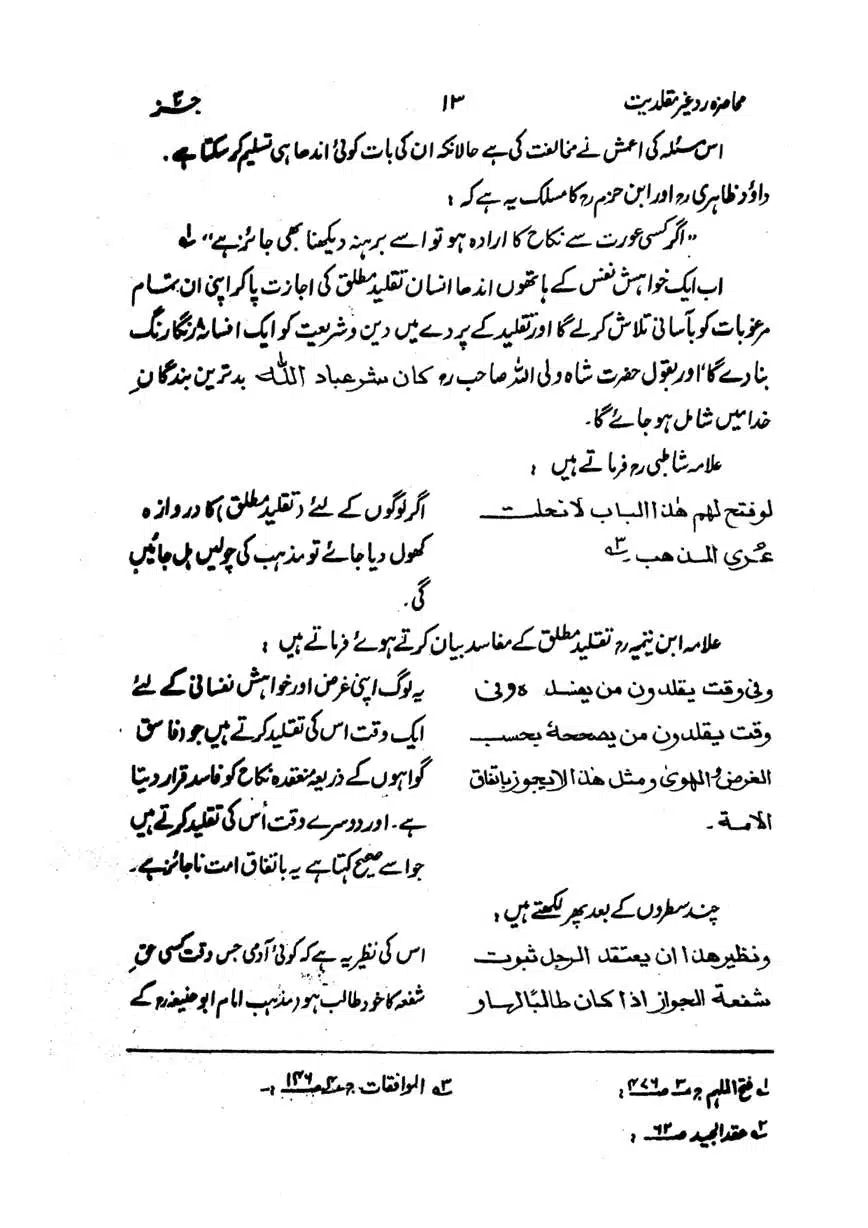 محاضرہ رد غیر مقلدیت ۱۳ جزء ۳
اس مسئلہ کی اعمش نے مخالفت کی ہے حالانکہ ان کی بات کوئی اندھا ہی تسلیم کر سکتا ہے۔
داؤد ظاہریؒ اور ابن حزمؒ کا مسلک یہ ہے کہ :
"اگر کسی عورت سے نکاح کا ارادہ ہو تو اسے برہنہ دیکھنا بھی جائز ہے" ؎۱
اب ایک خواہش نفس کے ہاتھوں اندھا انسان تقلید مطلق کی اجازت پا کر اپنی ان تمام
مرغوبات کو بآسانی تلاش کرلے گا اور تقلید کے پردے میں دین و شریعت کو ایک افسانۂ رنگا رنگ
بنا دے گا اور بقول حضرت شاہ ولی اللہ صاحبؒ کان شر عباد اللہ ؎۲ بدترین بندگانِ
خدا میں شامل ہو جائے گا۔
علامہ شاطبیؒ فرماتے ہیں :
لو فتح لهم هذا الباب لانحلت
عُرى المذهب ؎۳
اگر لوگوں کے لئے (تقلید مطلق) کا دروازہ
کھول دیا جائے تو مذہب کی چولیں ہل جائیں
گی۔
علامہ ابن تیمیہؒ تقلید مطلق کے مفاسد بیان کرتے ہوئے فرماتے ہیں :
وفی وقت یقلدون من یفسدہ وفی
وقت یقلدون من یصححہ بحسب
الغرض والھویٰ ومثل ھذا لایجوز باتفاق
الامة۔
یہ لوگ اپنی غرض اور خواہش نفسانی کے لئے
ایک وقت اس کی تقلید کرتے ہیں جو (فاسق
گواہوں کے ذریعۂ منعقدہ نکاح کو فاسد قرار دیتا
ہے۔ اور دوسرے وقت اُس کی تقلید کرتے ہیں
جو اسے صحیح کہتا ہے یہ باتفاق امت ناجائز ہے۔
چند سطروں کے بعد پھر لکھتے ہیں :
ونظیر ھذا ان یعتقد الرجل ثبوت
شفعة الجواز اذا کان طالبًا لها و
اس کی نظیر یہ ہے کہ کوئی آدمی جس وقت کسی حقِ
شفعہ کا خود طالب ہو (مذہب امام ابوحنیفہؒ کے
؎۱ فتح الملہم ج ۳ ص ۴۷۶ :
؎۳ الموافقات ج ۴ ص ۱۴۶ :-
؎۲ عقد الجید ص ۶۲ :